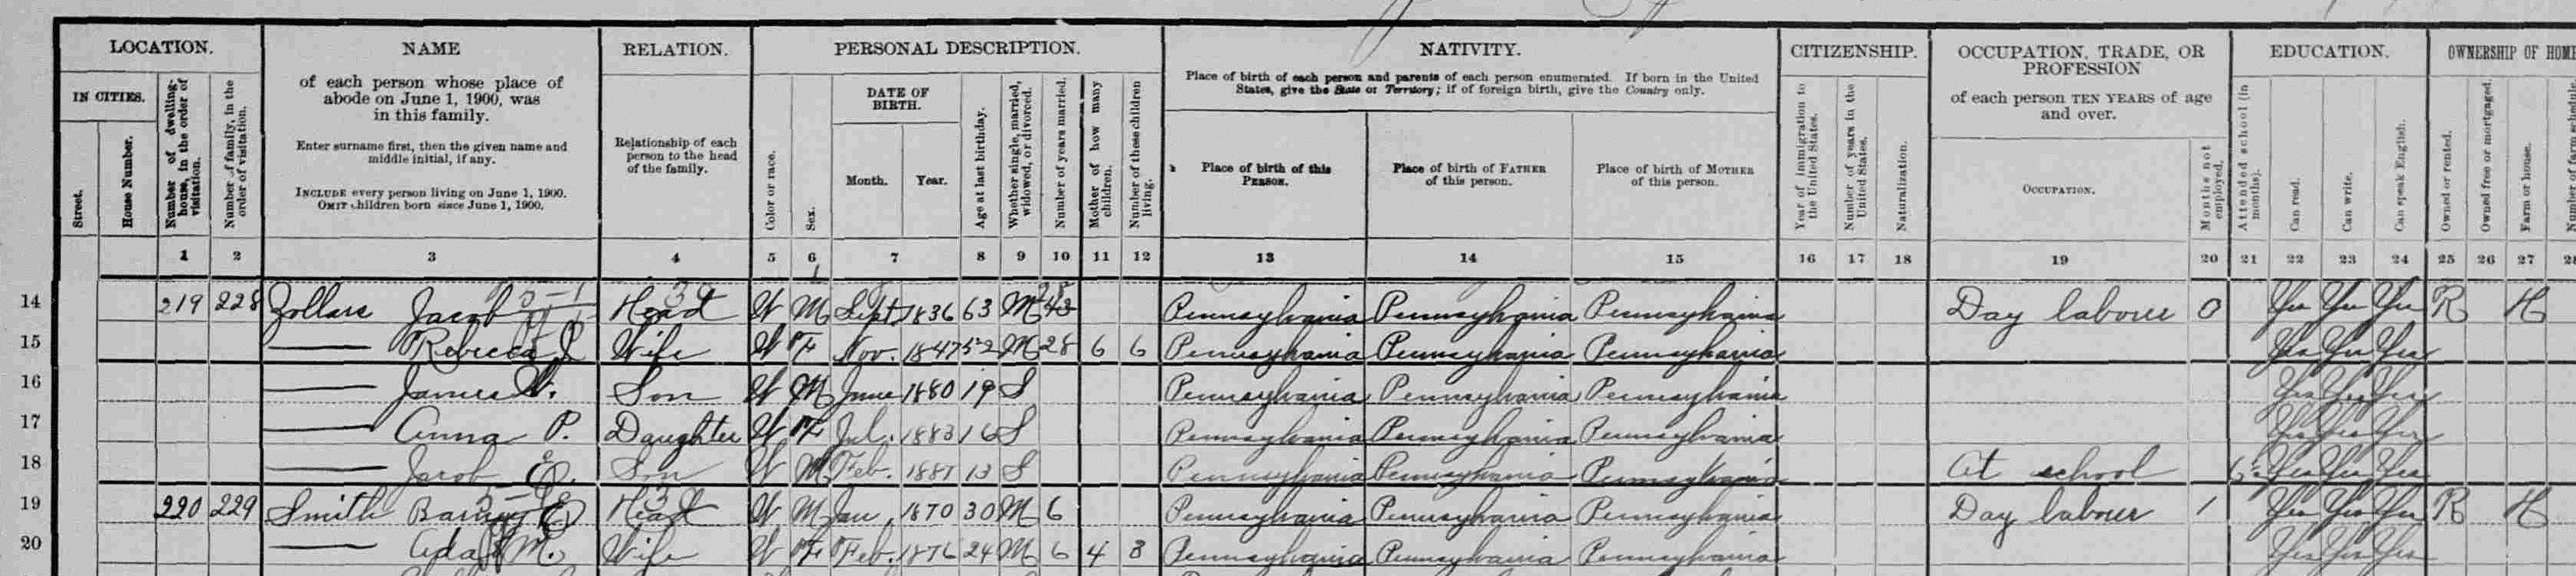 LOCATION. NAME RELATION. PERSONAL DESCRIPTION. NATIVITY. CITIZENSHIP. OCCUPATION, TRADE, OR PROFESSION EDUCATION. OWNERSHIP OF HOME
IN CITIES.
Street.
House Number.
Number of dwelling-house, in the order of visitation.
Number of family, in the order of visitation.
of each person whose place of
abode on June 1, 1900, was
in this family.
Enter surname first, then the given name and
middle initial, if any.
INCLUDE every person living on June 1, 1900.
OMIT children born since June 1, 1900.
Relationship of each
person to the head
of the family.
Color or race.
Sex.
DATE OF
BIRTH.
Month. Year.
Age at last birthday.
Whether single, married, widowed, or divorced.
Number of years married.
Mother of how many children.
Number of these children living.
Place of birth of each person and parents of each person enumerated. If born in the United
States, give the State or Territory; if of foreign birth, give the Country only.
Place of birth of this
PERSON.
Place of birth of FATHER
of this person.
Place of birth of MOTHER
of this person.
Year of immigration to the United States.
Number of years in the United States.
Naturalization.
of each person TEN YEARS of age
and over.
OCCUPATION.
Months not employed.
Attended school (in months).
Can read.
Can write.
Can speak English.
Owned or rented.
Owned free or mortgaged.
Farm or house.
Number of farm schedule
1 2 3 4 5 6 7 8 9 10 11 12 13 14 15 16 17 18 19 20 21 22 23 24 25 26 27
14 219 228 Zollars Jacob Head W M Sept 1836 63 M Pennsylvania Pennsylvania Pennsylvania Day labour 0 Yes Yes Yes R H
15 Rebecca J Wife W F Nov. 1847 52 M 28 6 6 Pennsylvania Pennsylvania Pennsylvania Yes Yes Yes
16 James W. Son W M June 1880 19 S Pennsylvania Pennsylvania Pennsylvania Yes Yes Yes
17 Anna P. Daughter W F Jul. 1883 16 S Pennsylvania Pennsylvania Pennsylvania Yes Yes Yes
18 Jacob E. Son W M Feb. 1887 13 S Pennsylvania Pennsylvania Pennsylvania At school Yes Yes Yes
19 220 229 Smith Head W M Jan. 1870 30 M 6 Pennsylvania Pennsylvania Pennsylvania Day labour 1 Yes Yes Yes R H
20 Ada M. Wife W F Feb. 1876 24 M 6 4 3 Pennsylvania Pennsylvania Pennsylvania Yes Yes Yes